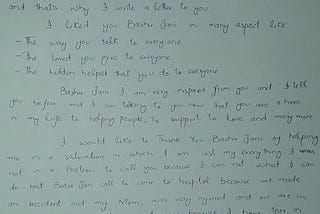 and thats why I write a letter to you
I liked you Bashir Jani in many aspect like
- The way you talk to everyone
- The loved you give to everyone
- The hidden helped that you do to everyone
Bashir Jani I am very inspired from you and I tell
you before and I am talking to you now that you are a hero
in my life to helping people, to support to Love and many more
I would like to Thank You Bashir Jani of helping
me in a saluation in which I am lost my everything I was
not in a Position to call you because I can not what I can
do but Baba Jan call to come to hospital because we made
an accident and my Mom was very injured and we are in
because I have fear in